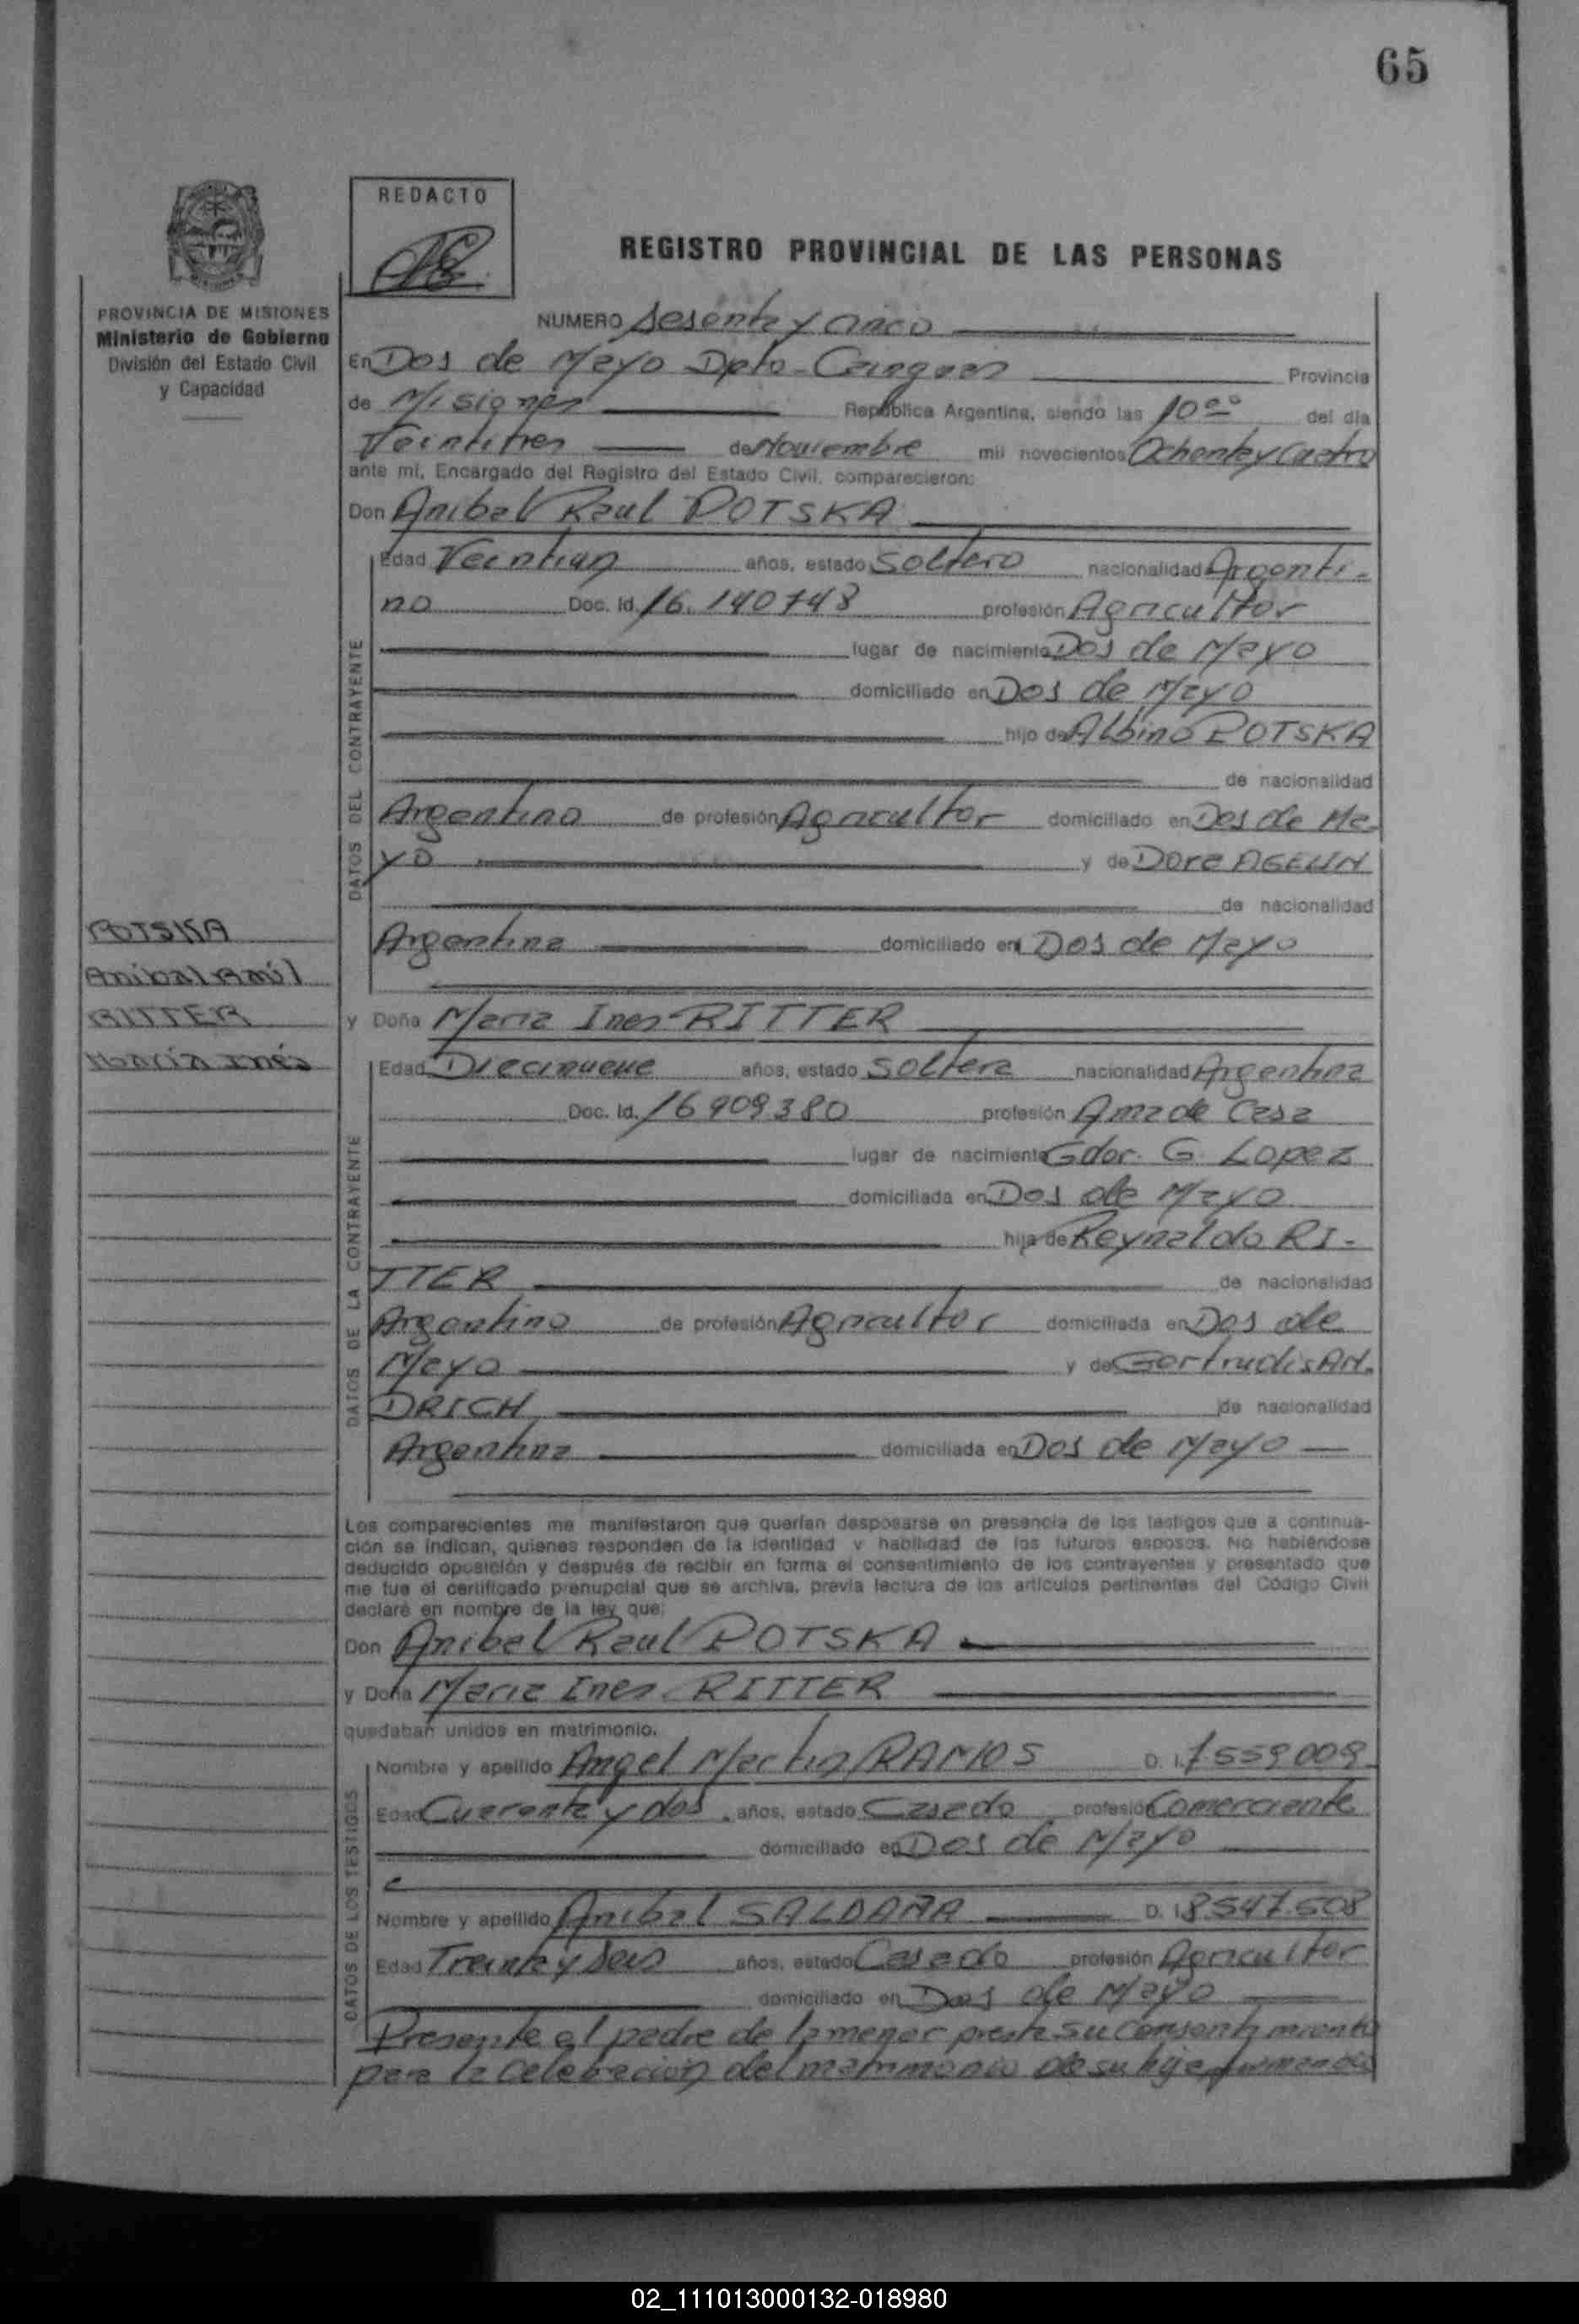 65
REDACTO
REGISTRO PROVINCIAL DE LAS PERSONAS
PROVINCIA DE MISIONES
Ministerio de Gobierno
División del Estado Civil
y Capacidad
NUMERO Sesenta y Cinco
En Dos de Mayo Dpto-Cainguas Provincia
de Misiones República Argentina, siendo las 10°° del día
Veintitres de Noviembre mil novecientos Ochenta y Cuatro
ante mí, Encargado del Registro del Estado Civil, comparecieron:
Don Anibal Raul POTSKA
DATOS DEL CONTRAYENTE
Edad Veintiun años, estado Soltero nacionalidad Argenti-
no Doc. Id. 16.140748 profesión Agricultor
lugar de nacimiento Dos de Mayo
domiciliado en Dos de Mayo
hijo de Albino POTSKA
de nacionalidad
Argentino de profesión Agricultor domiciliado en Dos de Ma-
yo y de Dora
de nacionalidad
Argentina domiciliado en Dos de Mayo
POTSKA
Anibal Raúl
RITTER
María Inés
y Doña Maria Ines RITTER
DATOS DE LA CONTRAYENTE
Edad Diecinueve años, estado Soltera nacionalidad Argentina
Doc. Id. 16909380 profesión Ama de Casa
lugar de nacimiento Gdor. G. Lopez
domiciliada en Dos de Mayo
hija de Reynaldo RI-
TTER de nacionalidad
Argentino de profesión Agricultor domiciliada en Dos de
Mayo y de Gertrudis AN-
DRICH de nacionalidad
Argentina domiciliada en Dos de Mayo
Los comparecientes me manifestaron que querían desposarse en presencia de los testigos que a continua-
ción se indican, quienes responden de la identidad y habilidad de los futuros esposos. No habiéndose
deducido oposición y después de recibir en forma el consentimiento de los contrayentes y presentado que
me fue el certificado prenupcial que se archiva, previa lectura de los artículos pertinentes del Código Civil
declaré en nombre de la ley que:
Don Anibal Raul POTSKA
y Doña Maria Ines RITTER
quedaban unidos en matrimonio.
DATOS DE LOS TESTIGOS
Nombre y apellido Angel Martin RAMOS D. I. 7.559.009
Edad Cuarenta y dos años, estado Casado profesión Comerciante
domiciliado en Dos de Mayo
Nombre y apellido Anibal SALDAÑA D. I. 8.547.508
Edad Treinta y Seis años, estado Casado profesión Agricultor
domiciliado en Dos de Mayo
Presente el padre de la menor presta su consentimiento
para la celebracion del matrimonio de su hija firmando
02_111013000132-018980